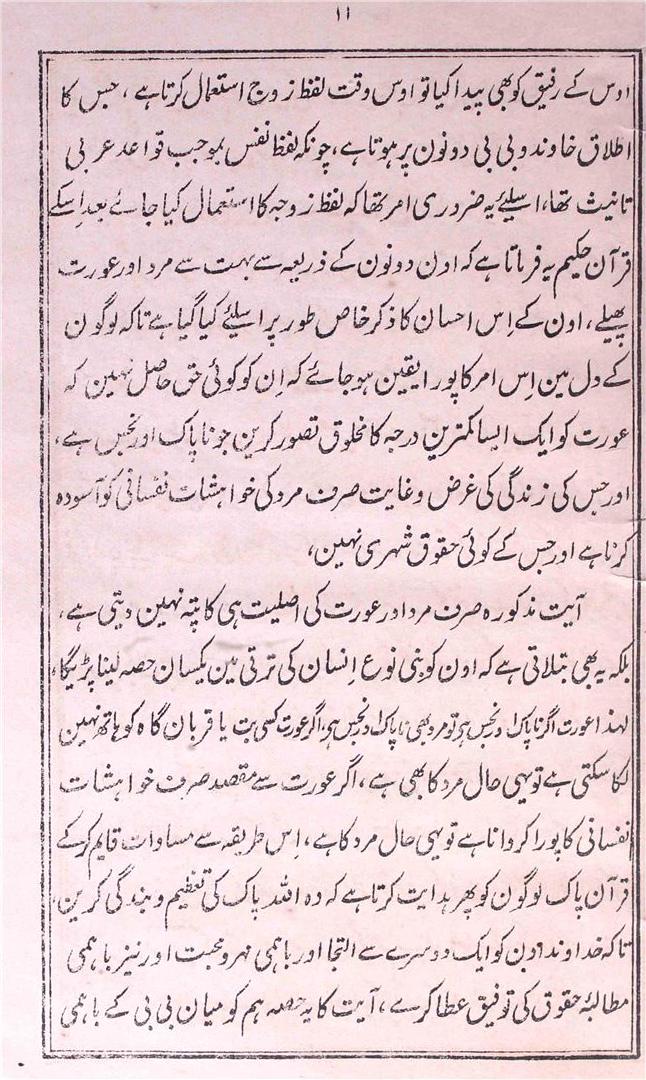 ۱۱
اوس کے رفیق کو بھی پیدا کیا تو اوس وقت لفظ زوج استعمال کرتا ہے، جس کا
اطلاق خاوند و بی بی دونون پر ہوتا ہے، چونکہ لفظ نفس بموجب قواعد عربی
تانیث تھا، اسلیئے یہ ضروری امر تھا کہ لفظ زوجہ کا استعمال کیا جائے بعد اسکے
قرآن حکیم یہ فرماتا ہے کہ اون دونون کے ذریعہ سے بہت سے مرد اور عورت
پھیلے، اون کے اِس احسان کا ذکر خاص طور پر اسلیئے کیا گیا ہے تاکہ لوگون
کے دل مین اِس امر کا پورا یقین ہو جائے کہ اِن کو کوئی حق حاصل نہین کہ
عورت کو ایک ایسا کمترین درجہ کا مخلوق تصور کرین جو ناپاک اور نجس ہے،
اور جس کی زندگی کی غرض و غایت صرف مرد کی خواہشات نفسانی کو آسودہ
کرنا ہے اور جس کے کوئی حقوق شہری نہین،
آیت مذکورہ صرف مرد اور عورت کی اصلیت ہی کا پتہ نہین دیتی ہے،
بلکہ یہ بھی بتلاتی ہے کہ اون کو بنی نوع اِنسان کی ترقی مین یکسان حصہ لینا پڑیگا،
لہذا عورت اگر ناپاک اور نجس ہو تو مرد بھی ناپاک اور نجس ہو، اگر عورت کسی بت یا قربان گاہ کو ہاتھ نہین
لگا سکتی ہے تو یہی حال مرد کا بھی ہے، اگر عورت سے مقصد صرف خواہشات
نفسانی کا پورا کروانا ہے تو یہی حال مرد کا ہے، اِس طریقہ سے مساوات قایم کر کے
قرآن پاک لوگون کو پھر ہدایت کرتا ہے کہ وہ اللہ پاک کی تعظیم و بندگی کرین،
تاکہ خداوند اون کو ایک دوسرے سے التجا اور باہمی مہر و محبت اور نیز باہمی
مطالبۂ حقوق کی توفیق عطا کرے، آیت کا یہ حصہ ہم کو میان بی بی کے باہمی